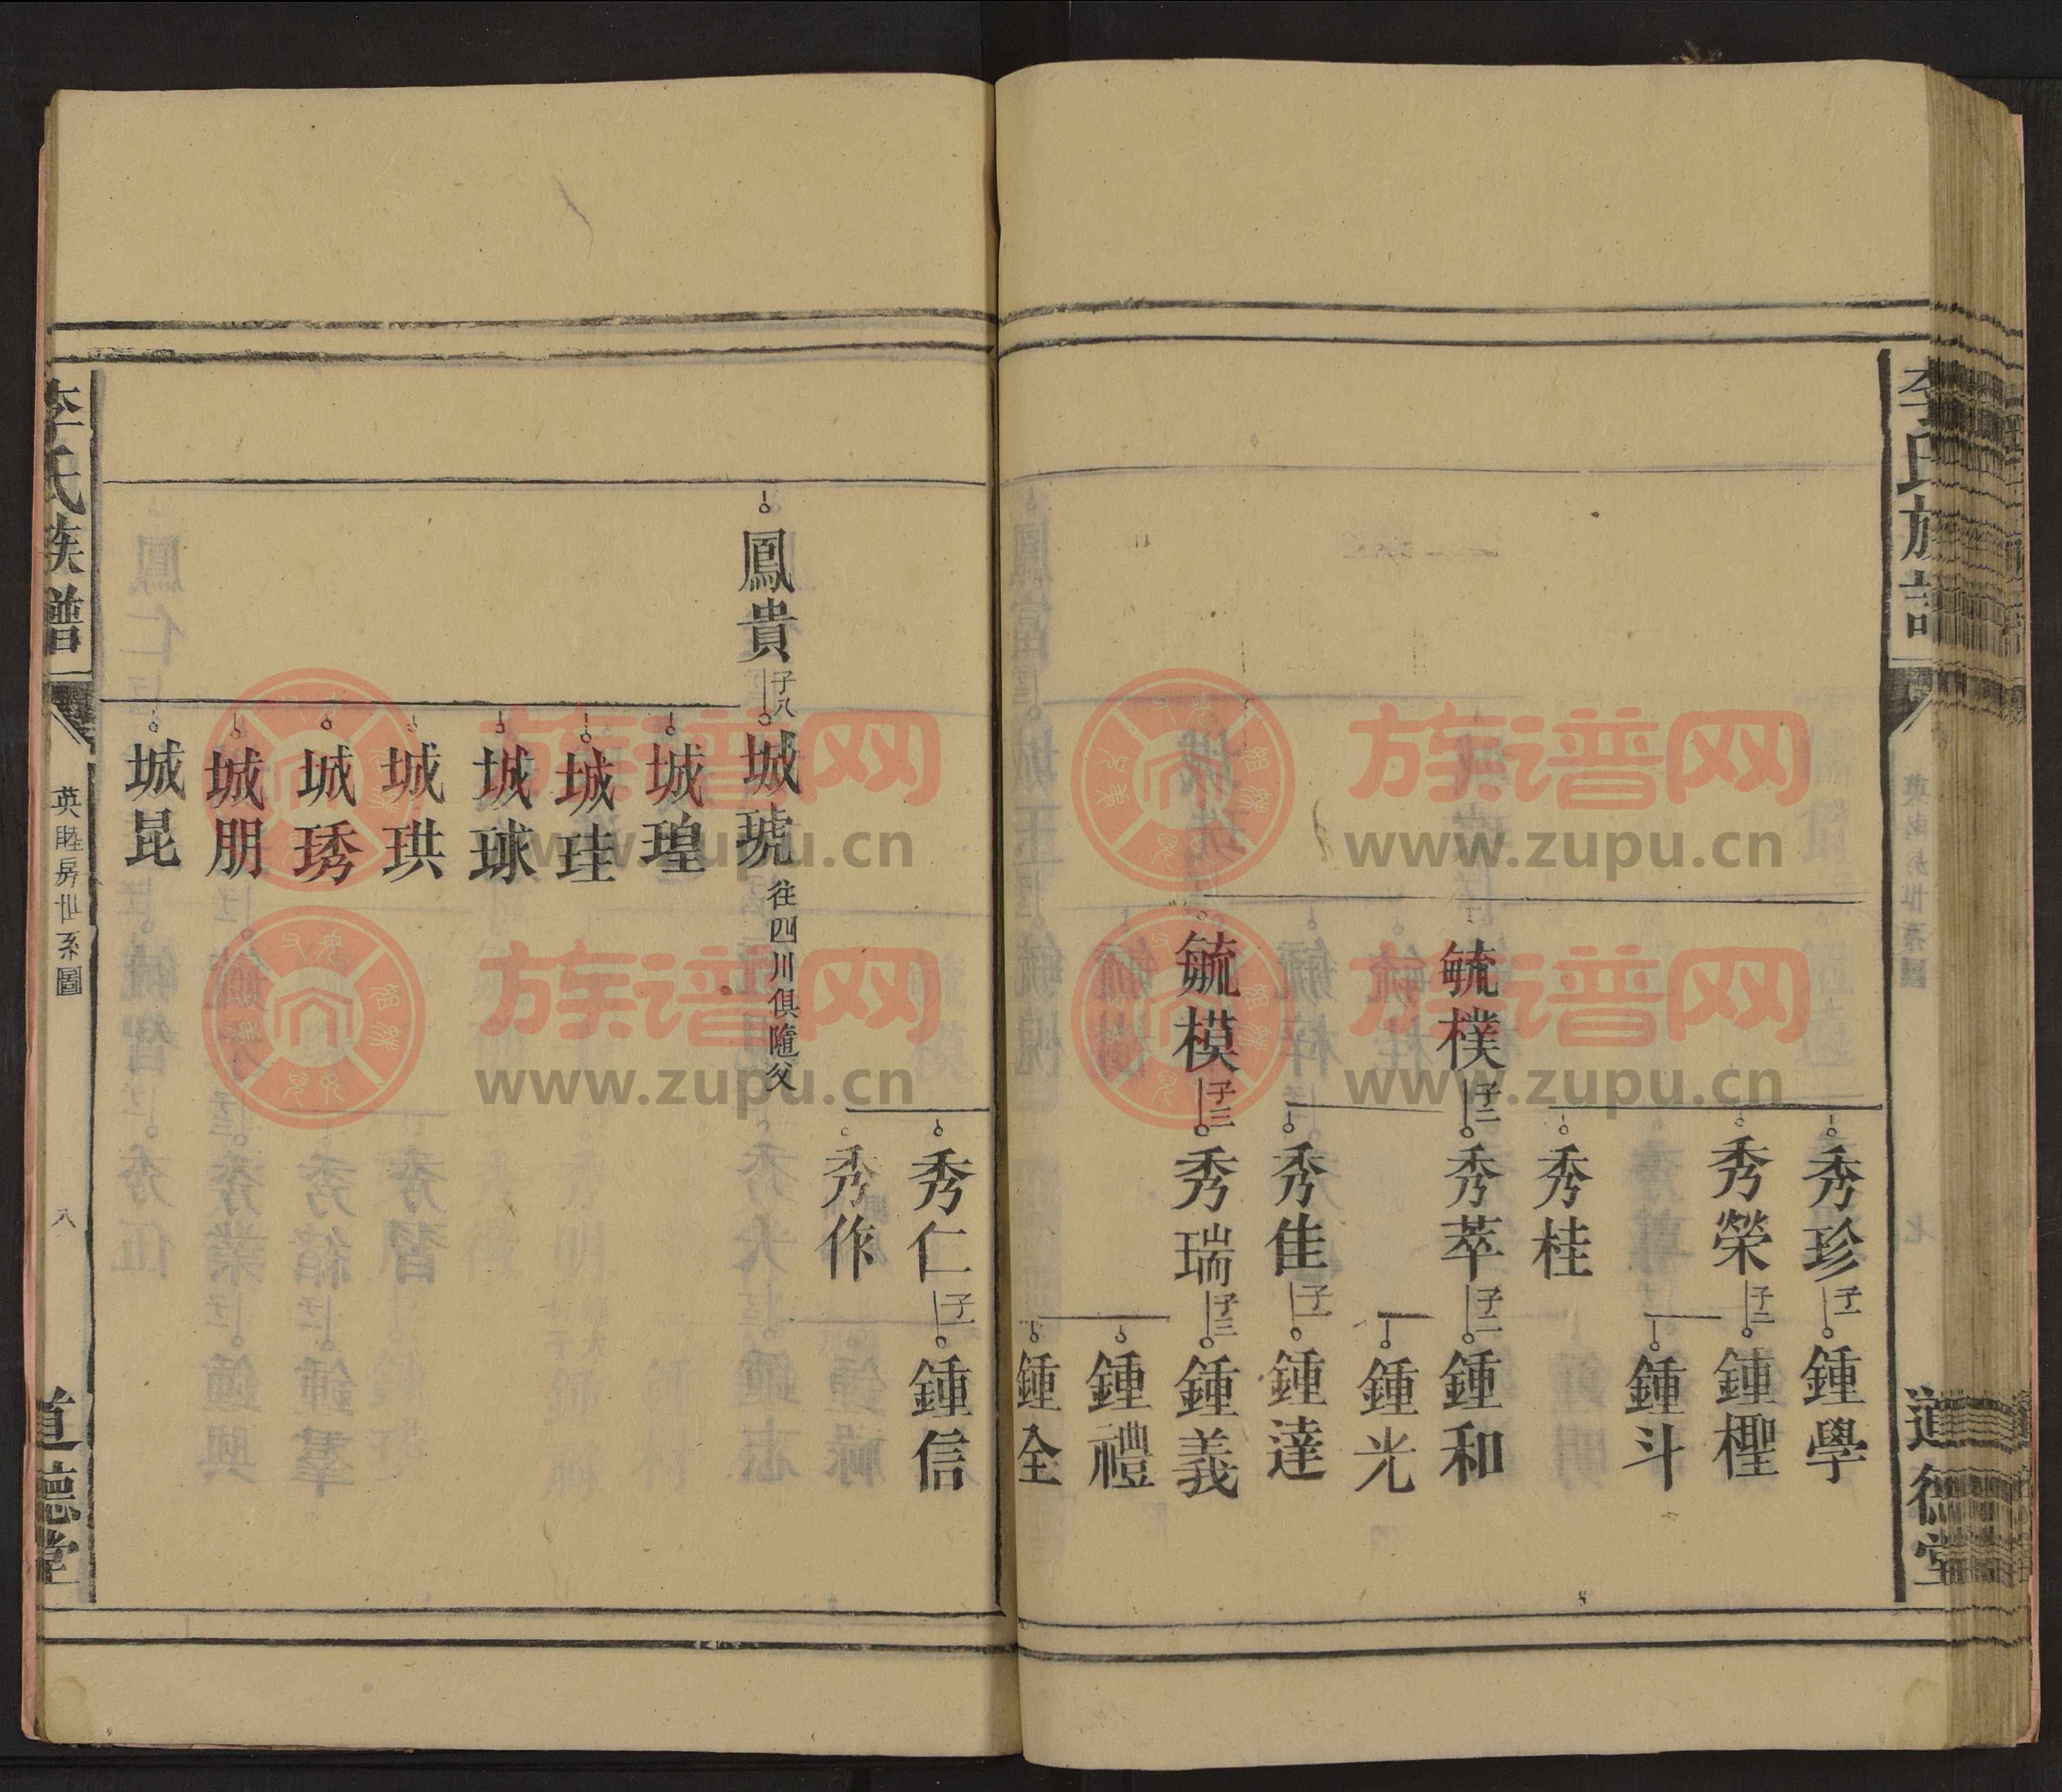 李氏族譜
道德堂
秀珍 子一 鍾學
秀榮 子二 鍾檉
鍾斗
秀桂
毓樸 子二 秀萃 子二 鍾和
鍾光
秀佳 子一 鍾達
毓模 子三 秀瑞 子三 鍾義
鍾禮
鍾全
秀仁 子一 鍾信
秀作
鳳貴 子八 城琥 往四川俱隨父
城瑝
城珪
城球
城珙
城琇
城朋
城昆
李氏族譜
英睦房世系圖
八
道德堂
族谱网
www.zupu.cn
族谱网
www.zupu.cn
族谱网
www.zupu.cn
族谱网
www.zupu.cn